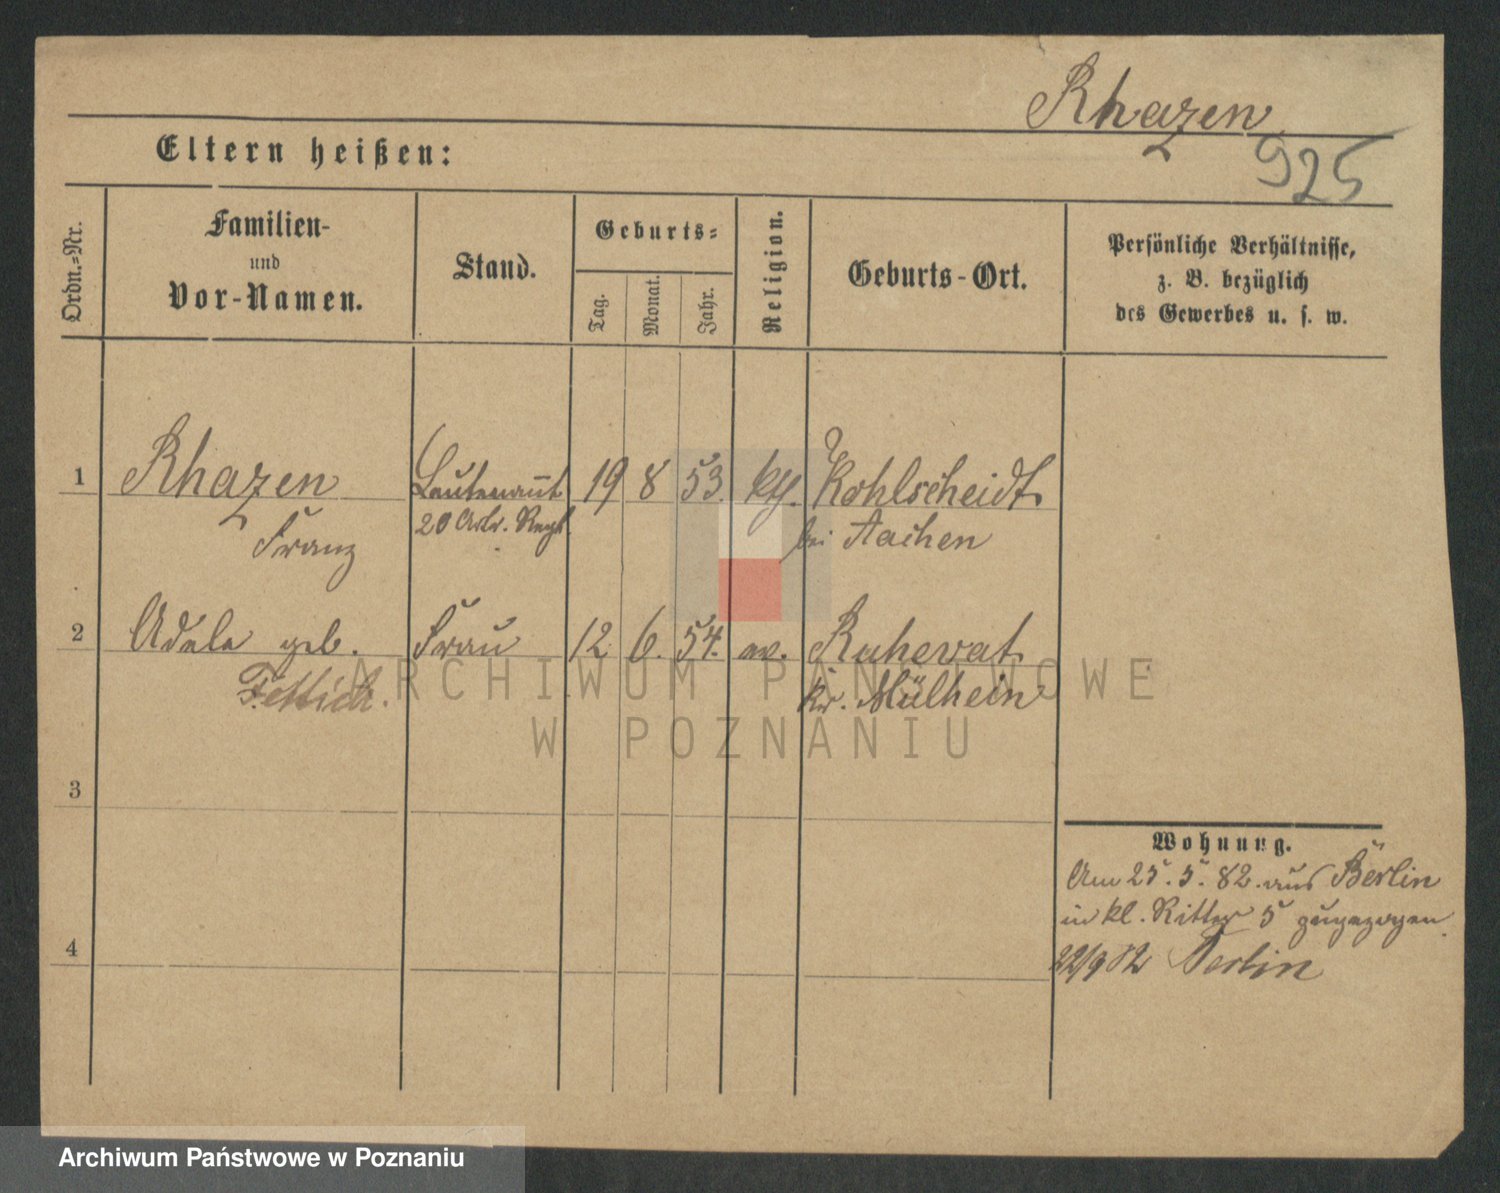 Rhazen
925
Eltern heißen:
Ordn.-Nr.
Familien-
und
Vor-Namen.
Stand.
Geburts-
Tag.
Monat.
Jahr.
Religion.
Geburts-Ort.
Persönliche Verhältnisse,
z. B. bezüglich
des Gewerbes u. s. w.
1 Rhazen Leutenant 19 8 53. kth. Kohlscheidt
Franz 20 Artr. Regt. bei Aachen
2 Adele geb. Frau 12. 6. 54. ev. Ruhevat
Fettich. Kr. Mülhein
3
4
Wohnung.
Am 25. 5. 82. aus Berlin
in kl. Ritter 5 zugezogen.
22/9 82 Berlin
ARCHIWUM PAŃSTWOWE
W POZNANIU
Archiwum Państwowe w Poznaniu